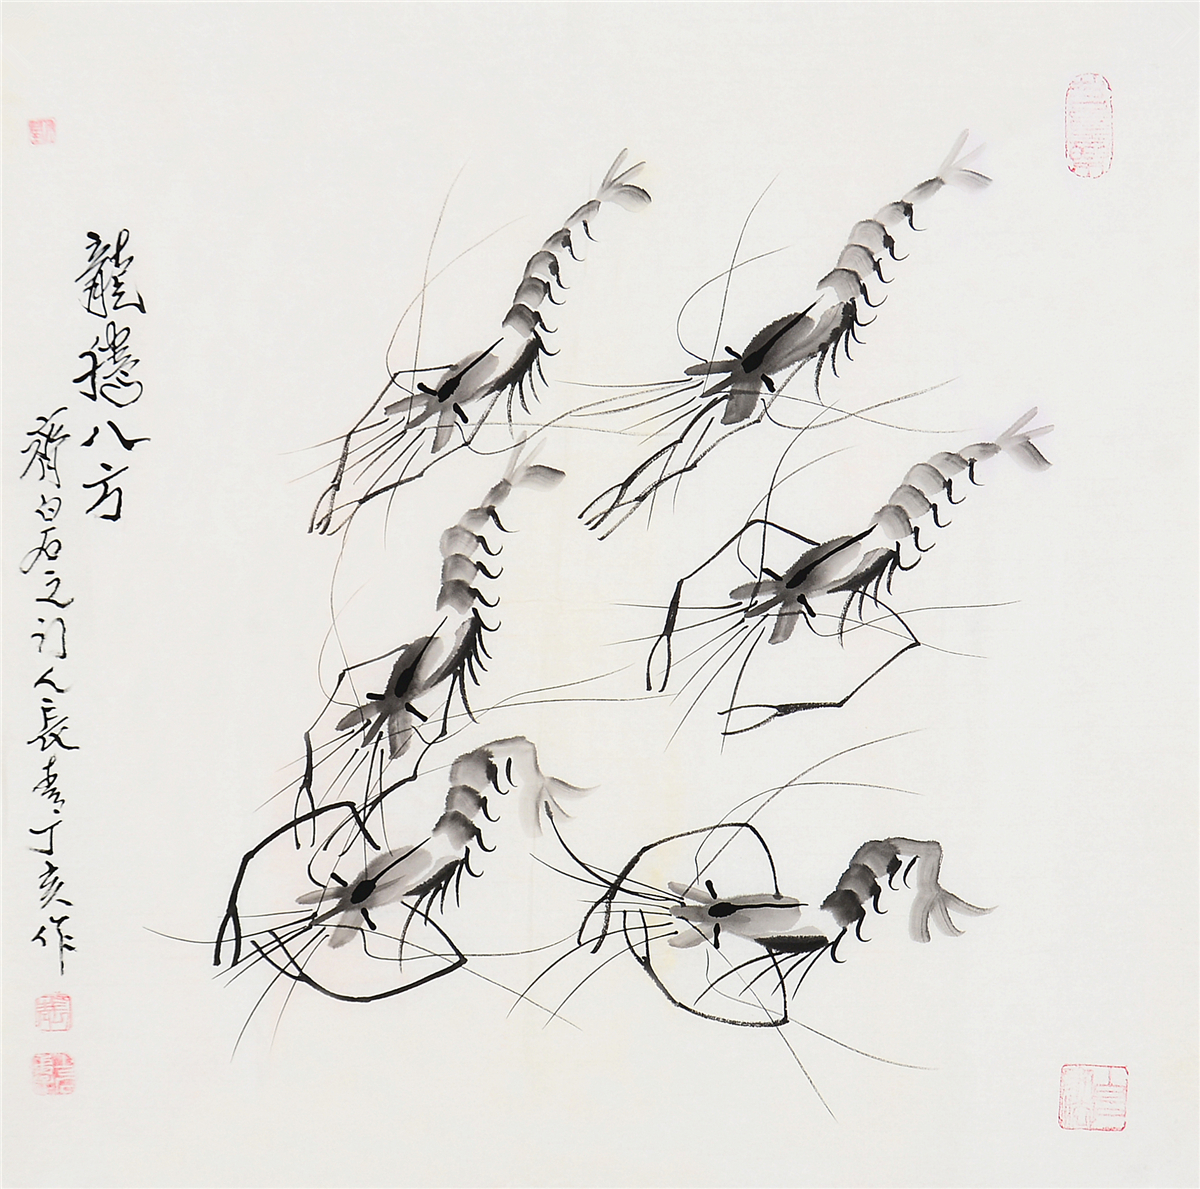 龍騰八方
齊白石之門人長青丁亥作